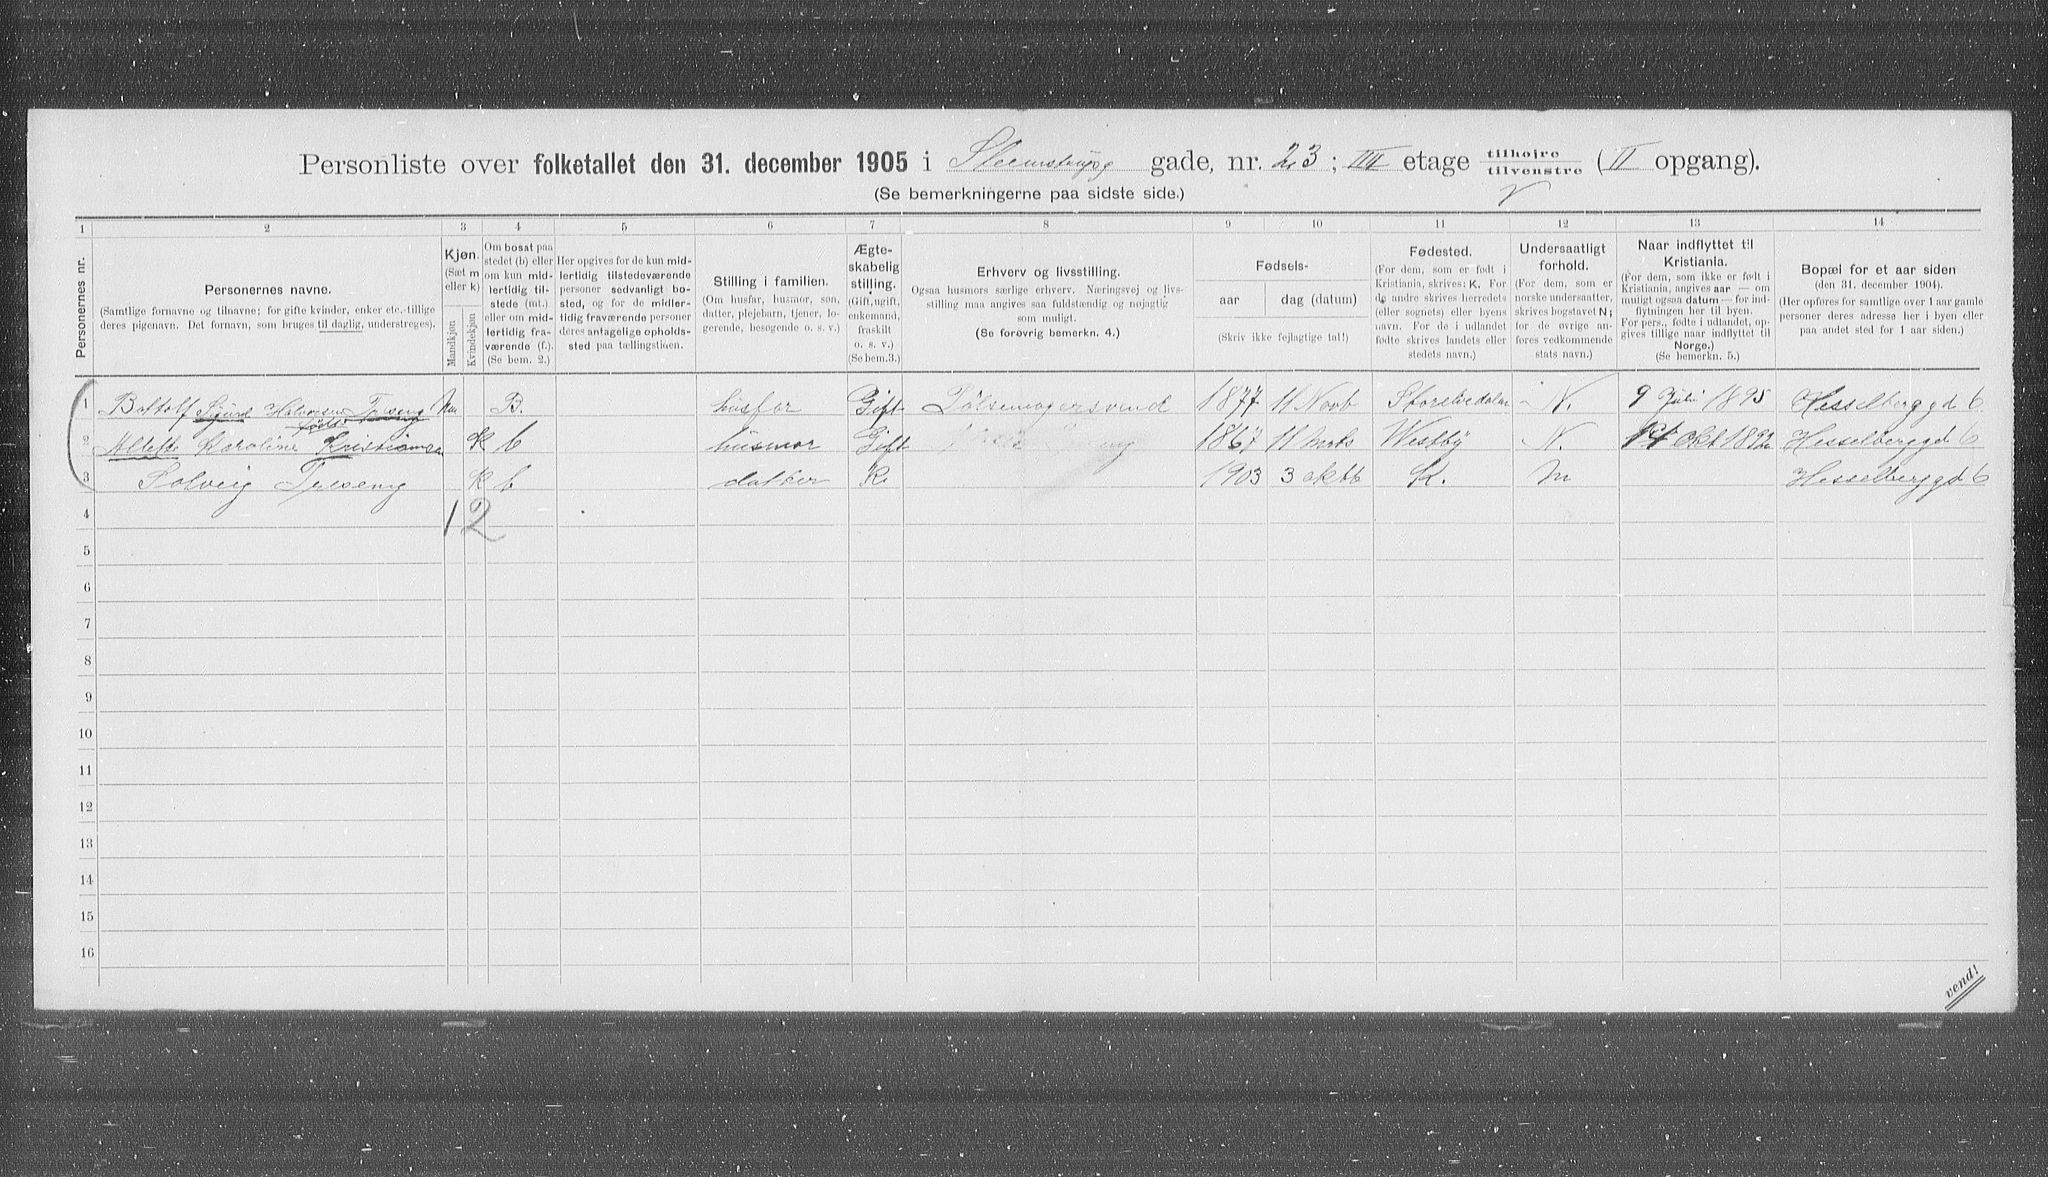 Personliste over folketallet den 31. december 1905 i Steenstrups gade, nr. 23; III etage tilhøjre / tilvenstre (II opgang).
V
(Se bemerkningerne paa sidste side.)
1 2 3 4 5 6 7 8 9 10 11 12 13 14
Personernes nr.
Personernes navne.
(Samtlige fornavne og tilnavne; for gifte kvinder, enker etc. tillige deres pigenavn. Det fornavn, som bruges til daglig, understreges).
Kjøn.
(Sæt m eller k)
Mandkjøn
Kvindekjøn
Om bosat paa stedet (b) eller om kun midlertidig tilstede (mt.) eller om midlertidig fraværende (f.). (Se bem. 2.)
Her opgives for de kun midlertidig tilstedeværende personer sedvanligt bosted, og for de midlertidig fraværende personer deres antagelige opholdssted paa tællingstiden.
Stilling i familien.
(Om husfar, husmor, søn, datter, plejebarn, tjener, logerende, besøgende o. s. v.)
Ægteskabelig stilling.
(Gift, ugift, enkemand, fraskilt o. s. v.) (Se bem. 3.)
Erhverv og livsstilling.
Ogsaa husmors særlige erhverv. Næringsvej og livsstilling maa angives saa fuldstændig og nøjagtig som muligt.
(Se forøvrig bemerkn. 4.)
Fødsels-
aar
dag (datum)
(Skriv ikke fejlagtige tal!)
Fødested.
(For dem, som er født i Kristiania, skrives: K. For de andre skrives herredets (eller sognets) eller byens navn. For de i udlandet fødte skrives landets eller stedets navn.)
Undersaatligt forhold.
(For dem, som er norske undersaatter, skrives bogstavet N; for de øvrige anføres vedkommende stats navn.)
Naar indflyttet til Kristiania.
(For dem, som ikke er født i Kristiania, angives aar — om muligt ogsaa datum — for indflytningen her til byen. For pers., fødte i udlandet, opgives tillige naar indflyttet til Norge.)
(Se bemerkn. 5.)
Bopæl for et aar siden
(den 31. december 1904).
(Her opføres for samtlige over 1 aar gamle personer deres adresse her i byen eller paa andet sted for 1 aar siden.)
1 Bottolf Sigurd Halvorsen Treseng B. husfar Gift Pølsemagersvend 1877 11 Novb N. 9 Juli 1895 Hesselberggd 6
født
2 Karoline Kristiansen K b husmor Gift 1867 Westby N. 14 Okt 1892 Hesselberggd 6
3 Solveig Treseng K b datter 1903 3 oktb K. N Hesselberggd 6
4 1 2
5
6
7
8
9
10
11
12
13
14
15
16
vend!